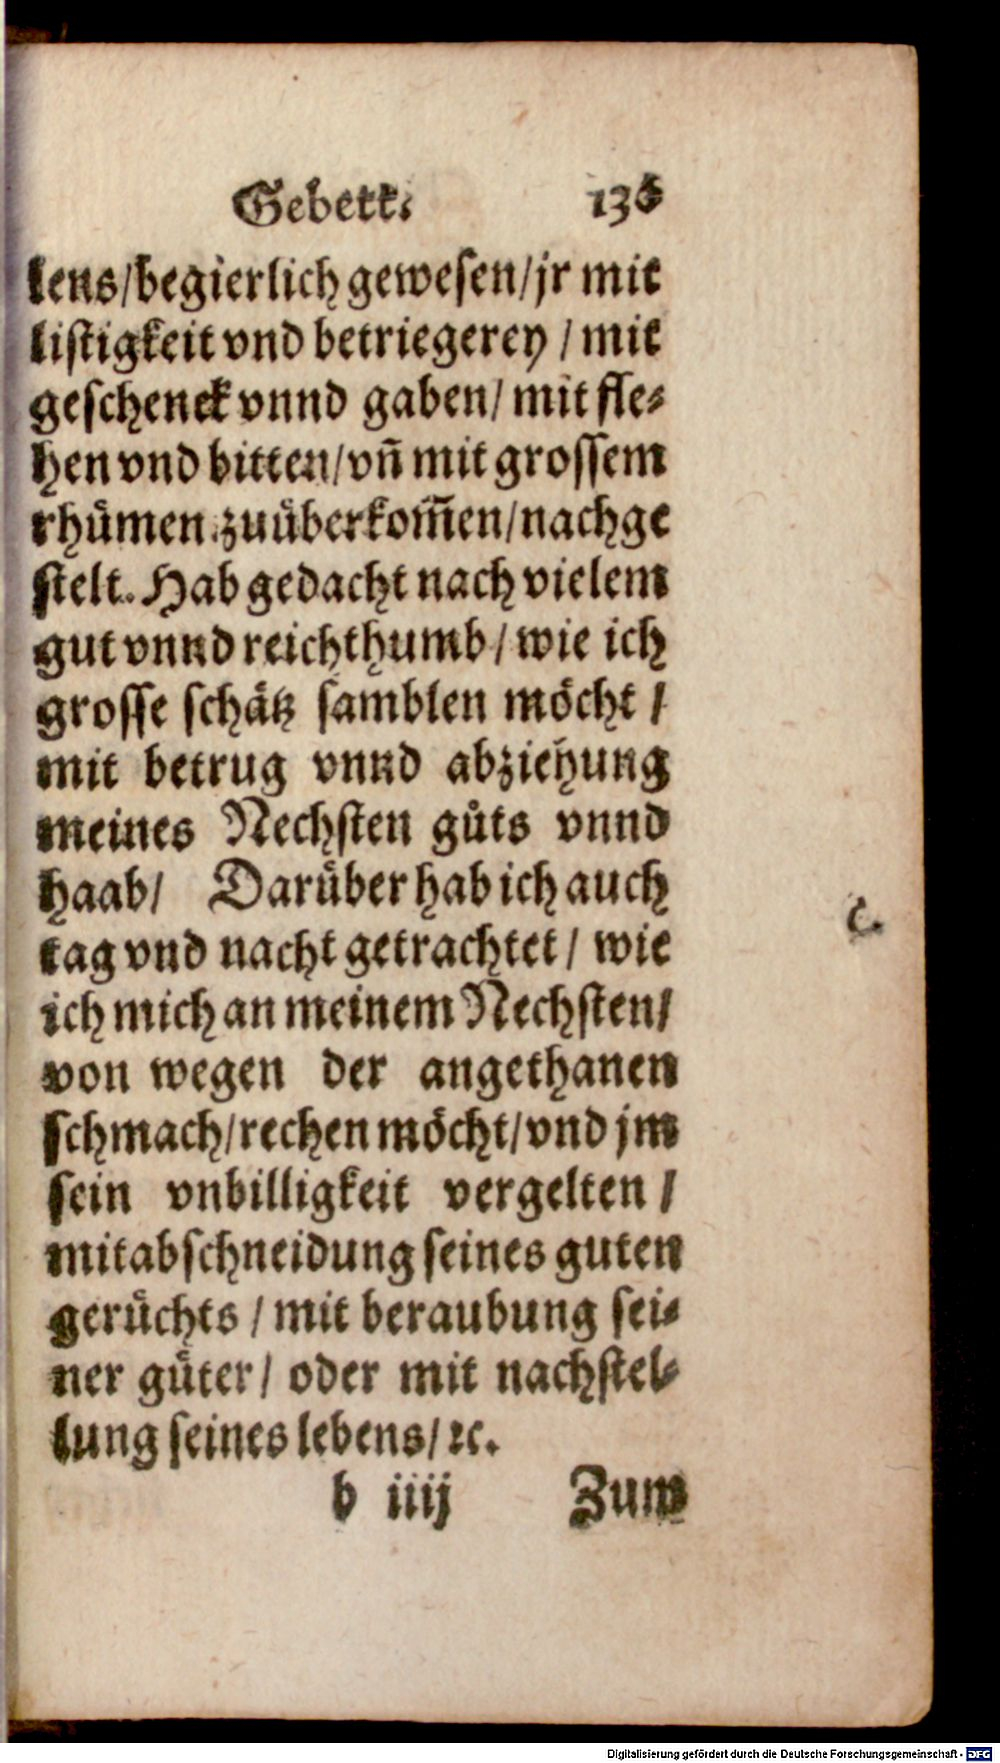 Gebett. 136
lens/begierlich gewesen/jr mit
listigkeit vnd betriegerey / mit
geschenck vnnd gaben/ mit fle⸗
hen vnd bitten/vñ mit grossem
rhümen zuüberkom̃en/nachge
stelt. Hab gedacht nach vielem
gut vnnd reichthumb/ wie ich
grosse schätz samblen möcht /
mit betrug vnnd abziehung
meines Nechsten gůts vnnd
haab/ Darüber hab ich auch
tag vnd nacht getrachtet/ wie
ich mich an meinem Nechsten/
von wegen der angethanen
schmach/rechen möcht/vnd jm
sein vnbilligkeit vergelten /
mit abschneidung seines guten
gerüchts / mit beraubung sei⸗
ner güter/ oder mit nachstel⸗
lung seines lebens/ ꝛc.
b iiij Zum
c.
Digitalisierung gefördert durch die Deutsche Forschungsgemeinschaft - DFG